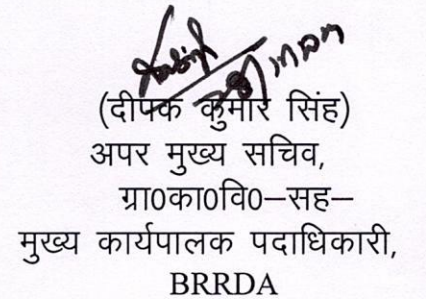 (दीपक कुमार सिंह)
अपर मुख्य सचिव,
ग्रा0का0वि0–सह–
मुख्य कार्यपालक पदाधिकारी,
BRRDA